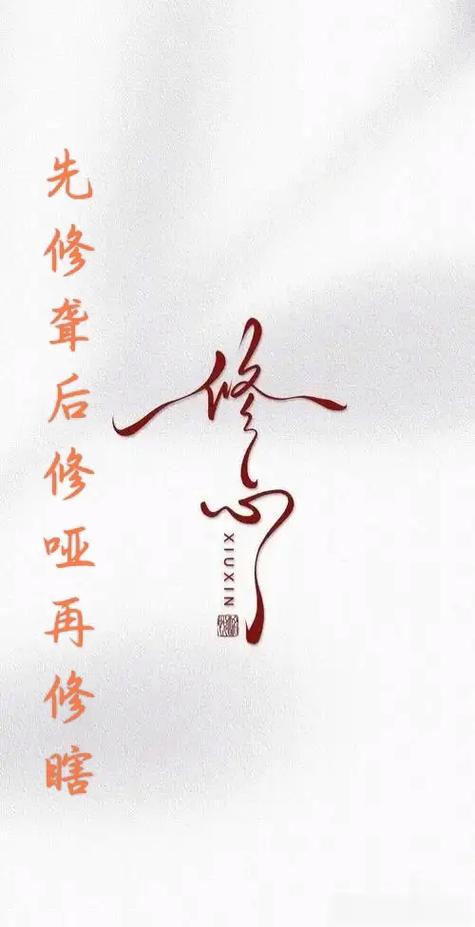 先修聋后修哑再修瞎
修心
XIUXIN